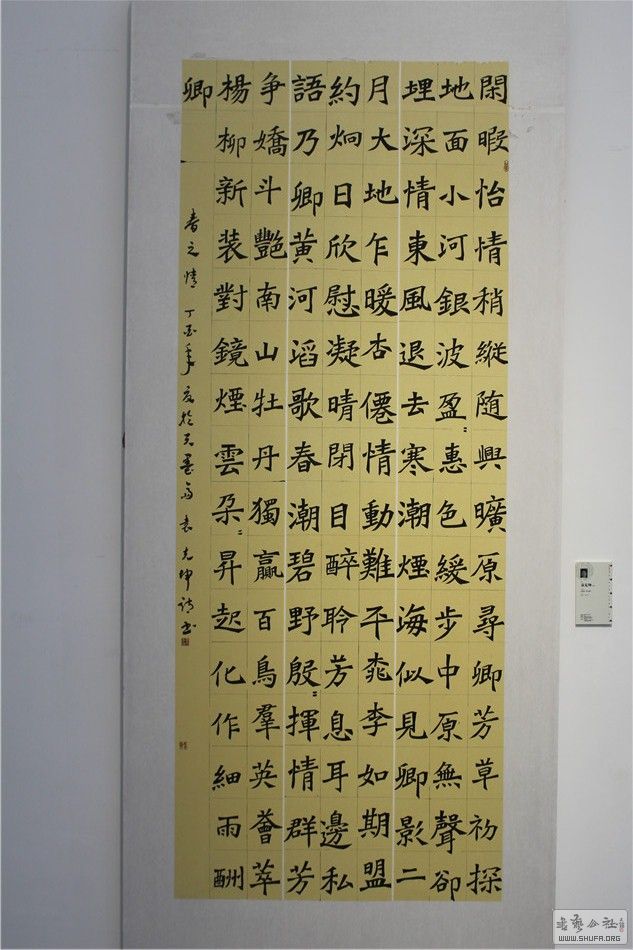 閑暇怡情稍縱隨興曠原尋卿芳草初探
地面小河銀波盈〻惠色緩步中原無聲卻
埋深情東風退去寒潮煙海似見卿影二
月大地乍暖杏僊情動難平桃李如期盟
約炯日欣慰凝晴閉目醉聆芳息耳邊私
語乃卿黃河滔歌春潮碧野殷〻揮情群芳
争嬌斗艷南山牡丹獨贏百鳥羣英薈萃
楊柳新装對鏡煙雲朵〻昇起化作細雨酬
卿
春之情 丁酉年夏於天墨 袁克坤詩書
書藝公社
WWW.SHUFA.ORG